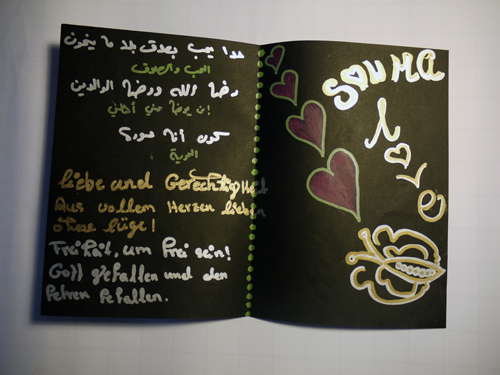 هدا يحب بصدق بلا ما يخون
الحب والصدق
رضا الله ورضا الوالدين
عني أهلي
كون أنه
الحرية
liebe und Gerechtigkeit
Aus vollem Herzen lieben
ohne lüge!
Freiheit, um frei sein!
Gott gefallen und den
gefallen.
SOUMA
love